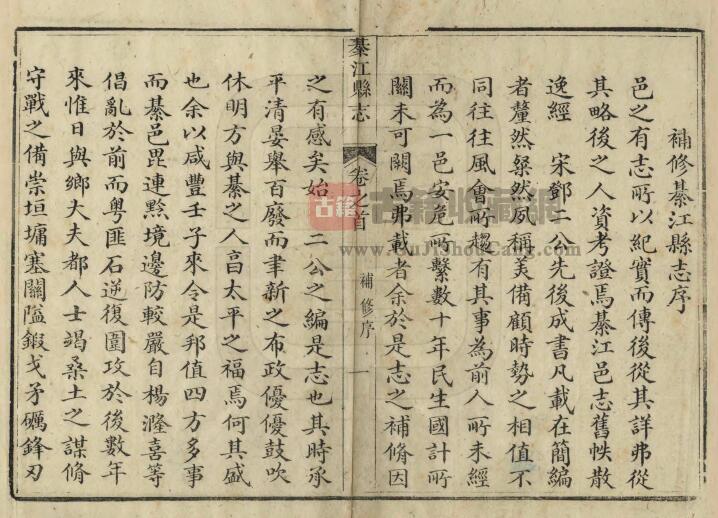 補修綦江縣志序
邑之有志所以紀實而傳後從其詳弗從
其略後之人資考證焉綦江邑志舊帙散
逸經 宋鄧二公先後成書凡載在簡編
者釐然粲然夙稱美備顧時勢之相值不
同往往風會所趨有其事為前人所未經
而為一邑安危所繫數十年民生國計所
關未可闕焉弗載者余於是志之補脩因
綦江縣志
卷之首
補修序
一
之有感矣始 二公之編是志也其時承
平清晏舉百廢而聿新之布政優優鼓吹
休明方與綦之人亯太平之福焉何其盛
也余以咸豐壬子來令是邦值四方多事
而綦邑毘連黔境邊防較嚴自楊漋喜等
倡亂於前而粵匪石逆復圍攻於後數年
來惟日與鄉大夫都人士竭桑土之謀脩
守戰之備崇垣墉塞關隘鍛戈矛礪鋒刃
古籍
古籍收藏網
www.GuJiShouCang.com